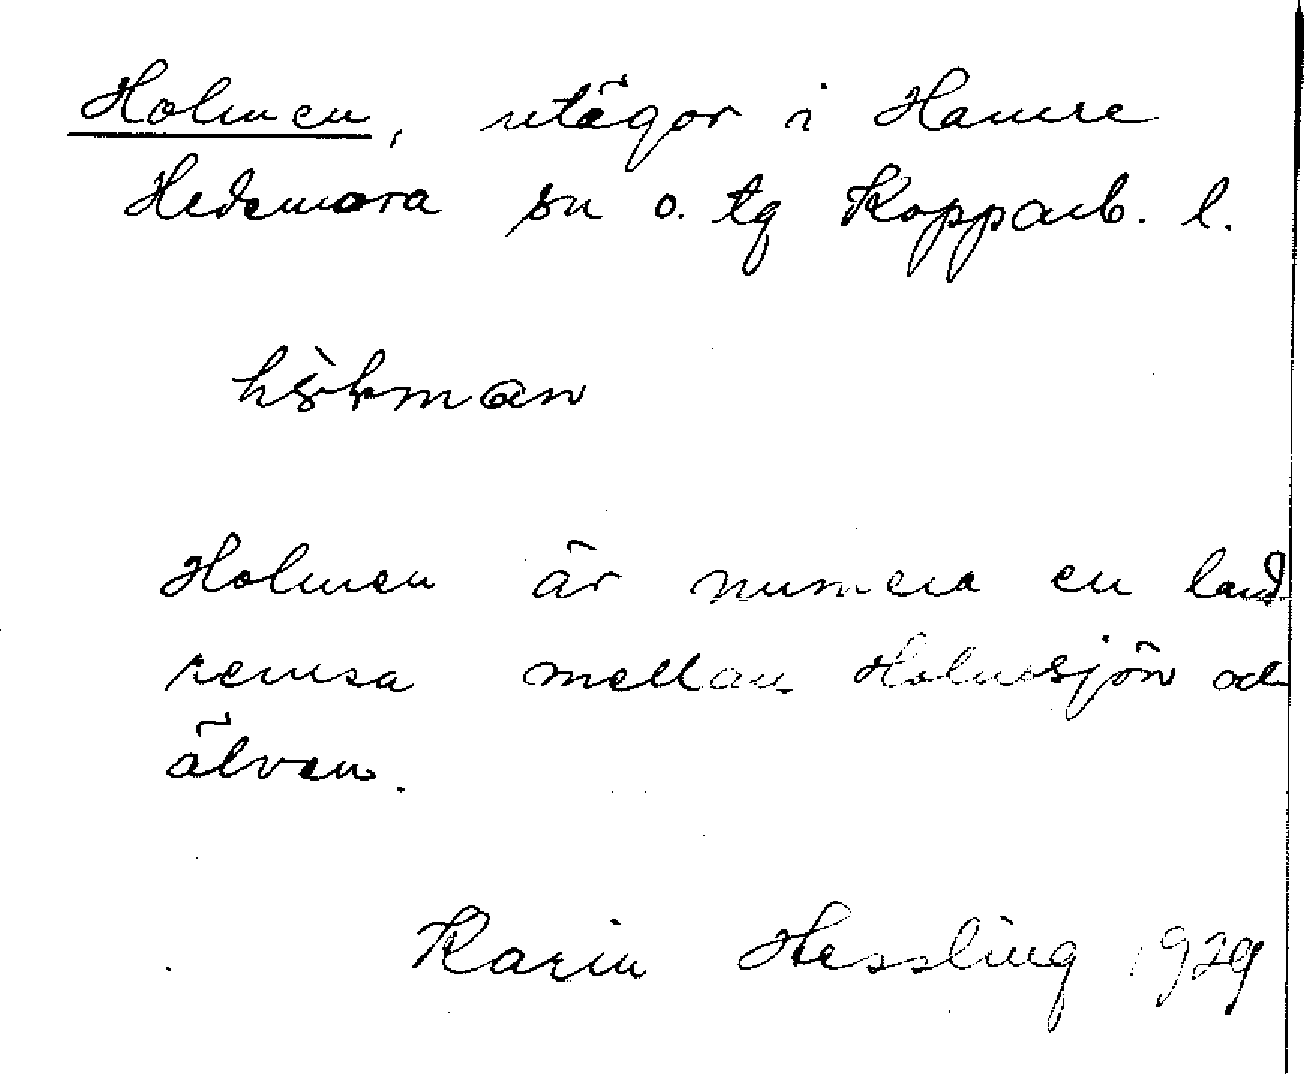 Holmen, utägor i Hamre
Hedemora sn o. tg Kopparb. l.
Holmen är numera en land
remsa mellan Holmsjön och
älven.
Karin Hessling 1929